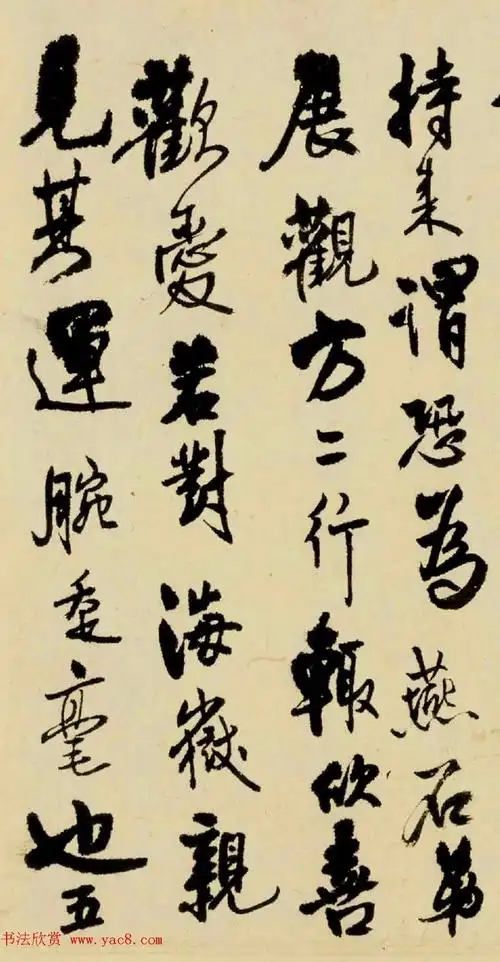 持来謂恐為燕石第
展觀方二行輒欣喜
歡愛若對海嶽親
見其運腕垂毫也五
书法欣赏 www.yac8.com